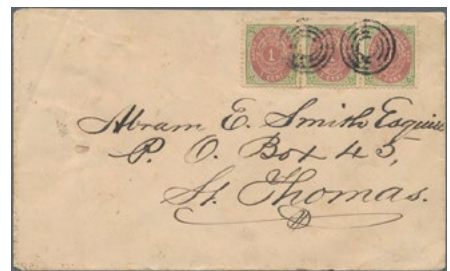 1
Abram E. Smith Esquire
P. O. Box 45,
St. Thomas.